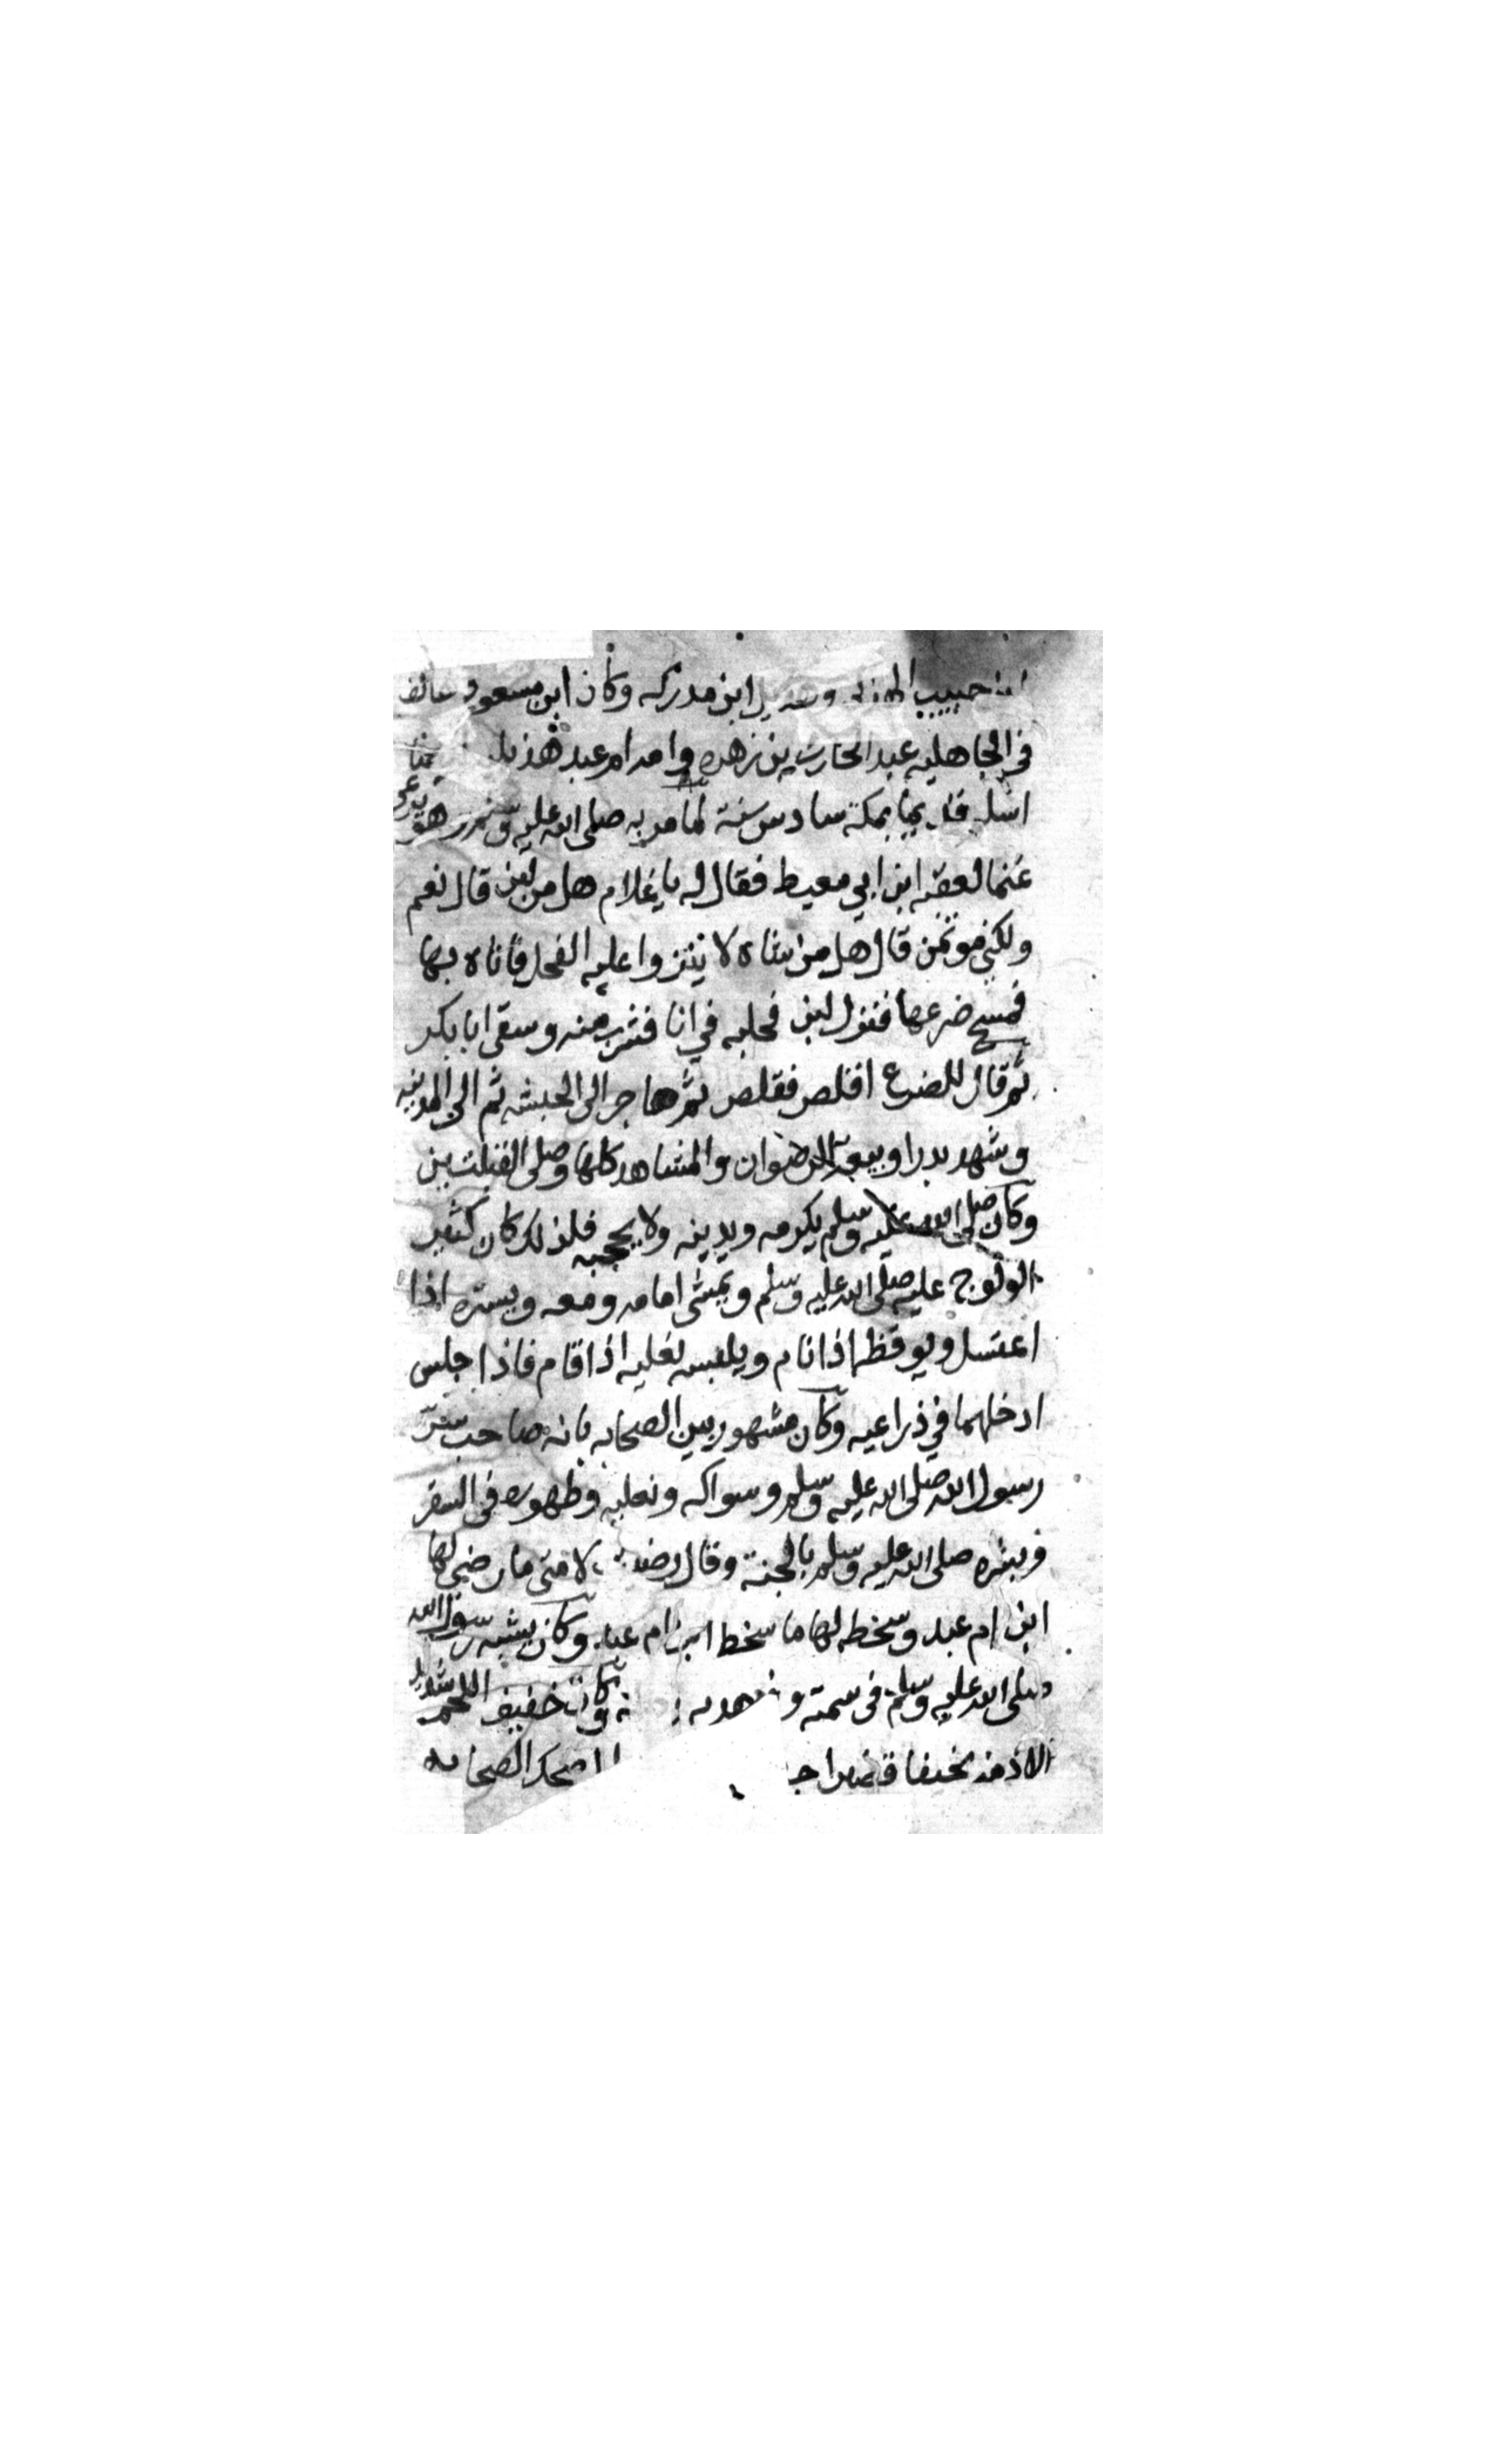 ابن حبيب الهذلي وهذيل ابن مدركه وكان ابن مسعود حالف
في الجاهليه عبد الحارث بن زهره وامه ام عبد هذليه
اسلم قديما بمكة سادس ستة لما مر به صلى الله عليه وسلم وهو يرعى
غنما لعقبه ابن ابي معيط فقال له يا غلام هل من لبن قال نعم
ولكني موتمن قال هل من شاه لا ينزوا عليه الفحل فاتاه بها
فمسح ضرعها فنزل لبن فحلبه في انا فشرب منه وسقى ابا بكر
ثم قال للضرع اقلص فقلص ثم هاجر الى الحبشه ثم الى المدينه
وشهد بدرا وبيعة الرضوان والمشاهد كلها وصلى القبلتين
وكان صلى الله عليه وسلم يكرمه ويدينه ولا يحجبه فلذلك كان كثير
الولوج عليه صلى الله عليه وسلم ويمشى امامه ومعه ويستره اذا
اغتسل ويوقظه اذا نام ويلبسه نعليه اذا قام فاذا جلس
ادخلهما في ذراعيه وكان مشهور بين الصحابه بانه صاحب سر
رسول الله صلى الله عليه وسلم وسواكه ونعليه وطهوره فى السفر
وبشره صلى الله عليه وسلم بالجنة وقال رضيت لامتى ما رضى لها
ابن ام عبد وسخطه لها ما سخط ابن ام عبد وكان يشبه رسول الله
صلى الله عليه وسلم فى سمته وهديه وكان خفيف اللحم شديد
الادمه نحيفا قصيرا الصحابه